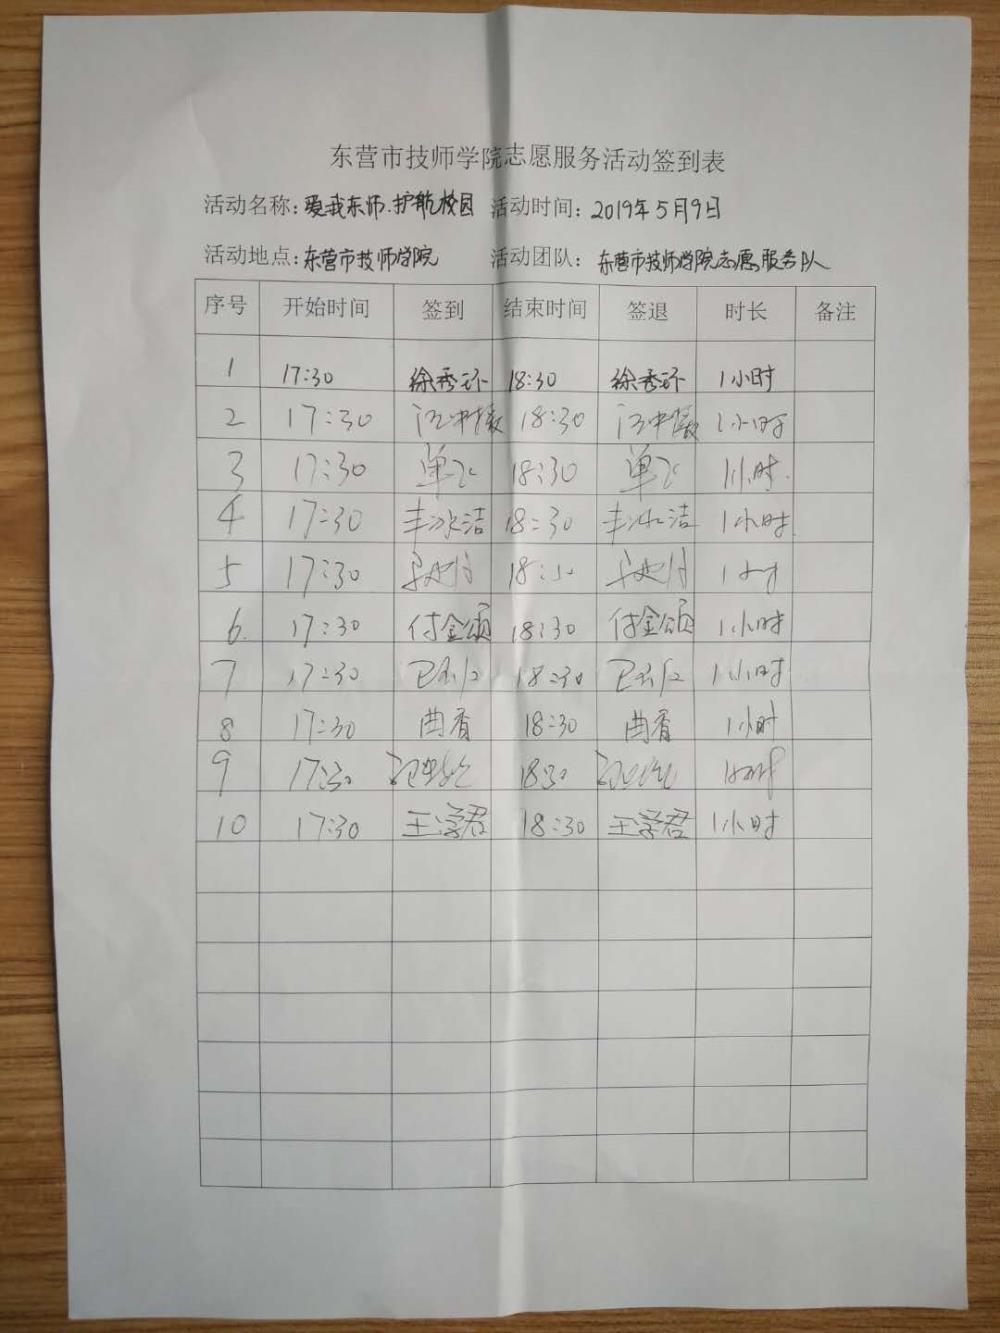 东营市技师学院志愿服务活动签到表
活动名称: 爱我东师.护航校园 活动时间: 2019年5月9日
活动地点: 东营市技师学院 活动团队: 东营市技师学院志愿服务队
序号 开始时间 签到 结束时间 签退 时长 备注
1 17:30 徐秀环 18:30 徐秀环 1小时
2 17:30 18:30 1小时
3 17:30 单飞 18:30 单飞 1小时.
4 17:30 丰冰洁 18:30 丰冰洁 1小时
5 17:30 18:30 1小时
6. 17:30 付金颂 18:30 付金颂 1小时
7 17:30 18:30 1小时
8 17:30 曲香 18:30 曲香 1小时
9 17:30 18:30 1小时
10 17:30 王学君 18:30 王学君 1小时